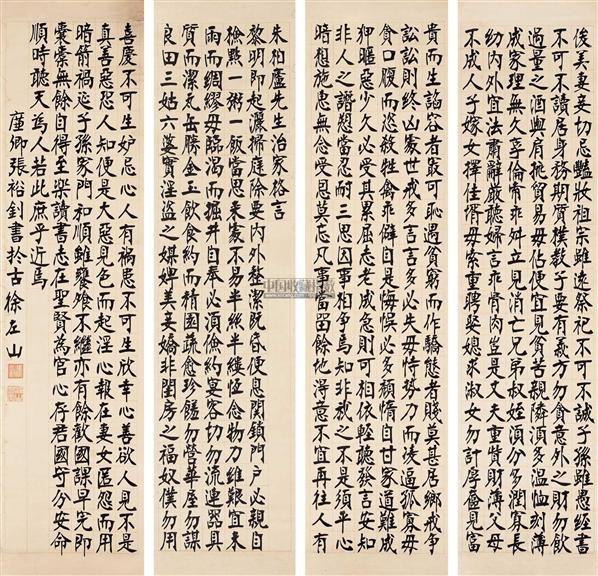 朱柏廬先生治家格言
黎明即起灑掃庭除要内外整潔既昏便息関鎖門户必親自
檢點一粥一飯當思来處不易半絲半縷恒念物力維艱宜未
雨而綢繆毋臨渴而掘井自奉必須儉約宴客切勿流連器具
質而潔瓦缶勝金玉飲食約而精園蔬愈珍饈勿營華屋勿謀
良田三姑六婆實淫盜之媒婢美妾嬌非閨房之福奴僕勿用
俊美妻妾切忌艷妝祖宗雖遠祭祀不可不誠子孫雖愚經書
不可不讀居身務期質樸教子要有義方勿貪意外之財勿飲
過量之酒與肩挑貿易毋佔便宜見貧苦親隣須多温恤刻薄
成家理無久享倫常乖舛立見消亡兄弟叔姪須分多潤寡長
幼内外宜法肅辭嚴聽婦言乖骨肉豈是丈夫重貲財薄父母
不成人子嫁女擇佳婿毋索重聘娶媳求淑女勿計厚奩見富
貴而生諂容者最可恥遇貧窮而作驕態者賤莫甚居鄉戒争
訟訟則終凶處世戒多言言多必失毋恃勢力而凌逼孤寡毋
貪口腹而恣殺牲禽乖僻自是悔悞必多頹惰自甘家道難成
狎暱惡少久必受其累屈志老成急則可相依輕聽發言安知
非人之譖愬當忍耐三思因事相争焉知非我之不是須平心
暗想施惠無念受恩莫忘凡事當留餘地得意不宜再往人有
喜慶不可生妒忌心人有禍患不可生欣幸心善欲人見不是
真善惡恐人知便是大惡見色而起淫心報在妻女匿怨而用
暗箭禍延子孫家門和順雖饔飧不繼亦有餘歡國課早完即
囊橐無餘自得至樂讀書志在聖賢為官心存君國守分安命
順時聽天為人若此庶乎近焉
廉卿張裕釗書於古徐左山